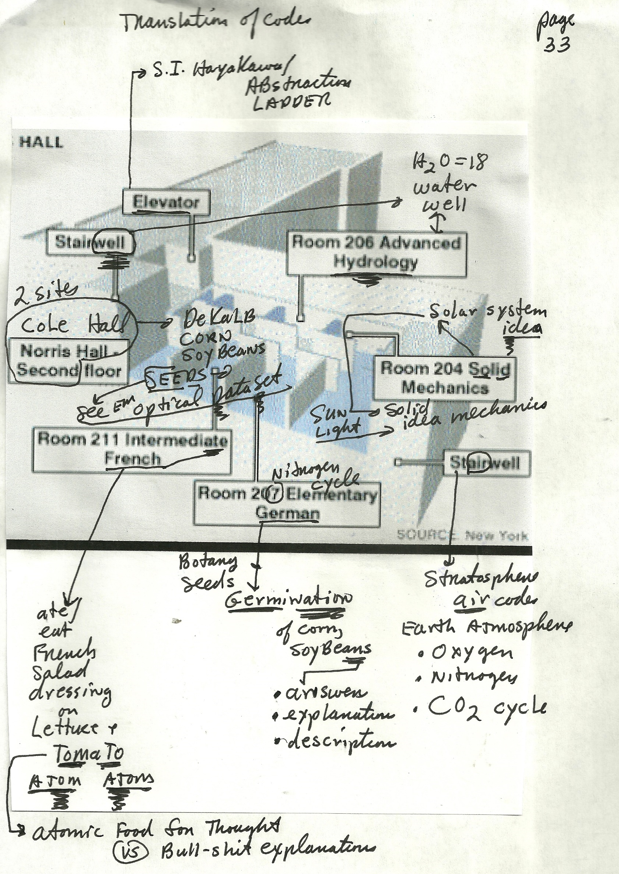 Translation of Codes
page
33
S.I. Hayakawa/
ABstraction
LADDER
HALL
H2O=18
water
well
Elevator
Stairwell
Room 206 Advanced
Hydrology
2 sites
Cole Hall
DeKALB
CORN
SOYBEANS
SEEDS
See Em Optical Data set
Norris Hall -
Second floor
Solar system
idea
Room 204 Solid
Mechanics
SUN
Light
Solid
idea mechanics
Room 211 Intermediate
French
Nitrogen
cycle
Room 207 Elementary
German
Stairwell
SOURCE: New York
Botany
Seeds
Germination
of corn,
SOYBeans
• answer
• explanation
• description
Stratosphere
air codes
Earth Atmosphere
• Oxygen
• Nitrogen
• CO2 cycle
ate/
eat
French
Salad
dressing
on
Lettuce +
TomaTo
ATOM ATOMS
atomic Food for Thought
VS Bull-shit explanations